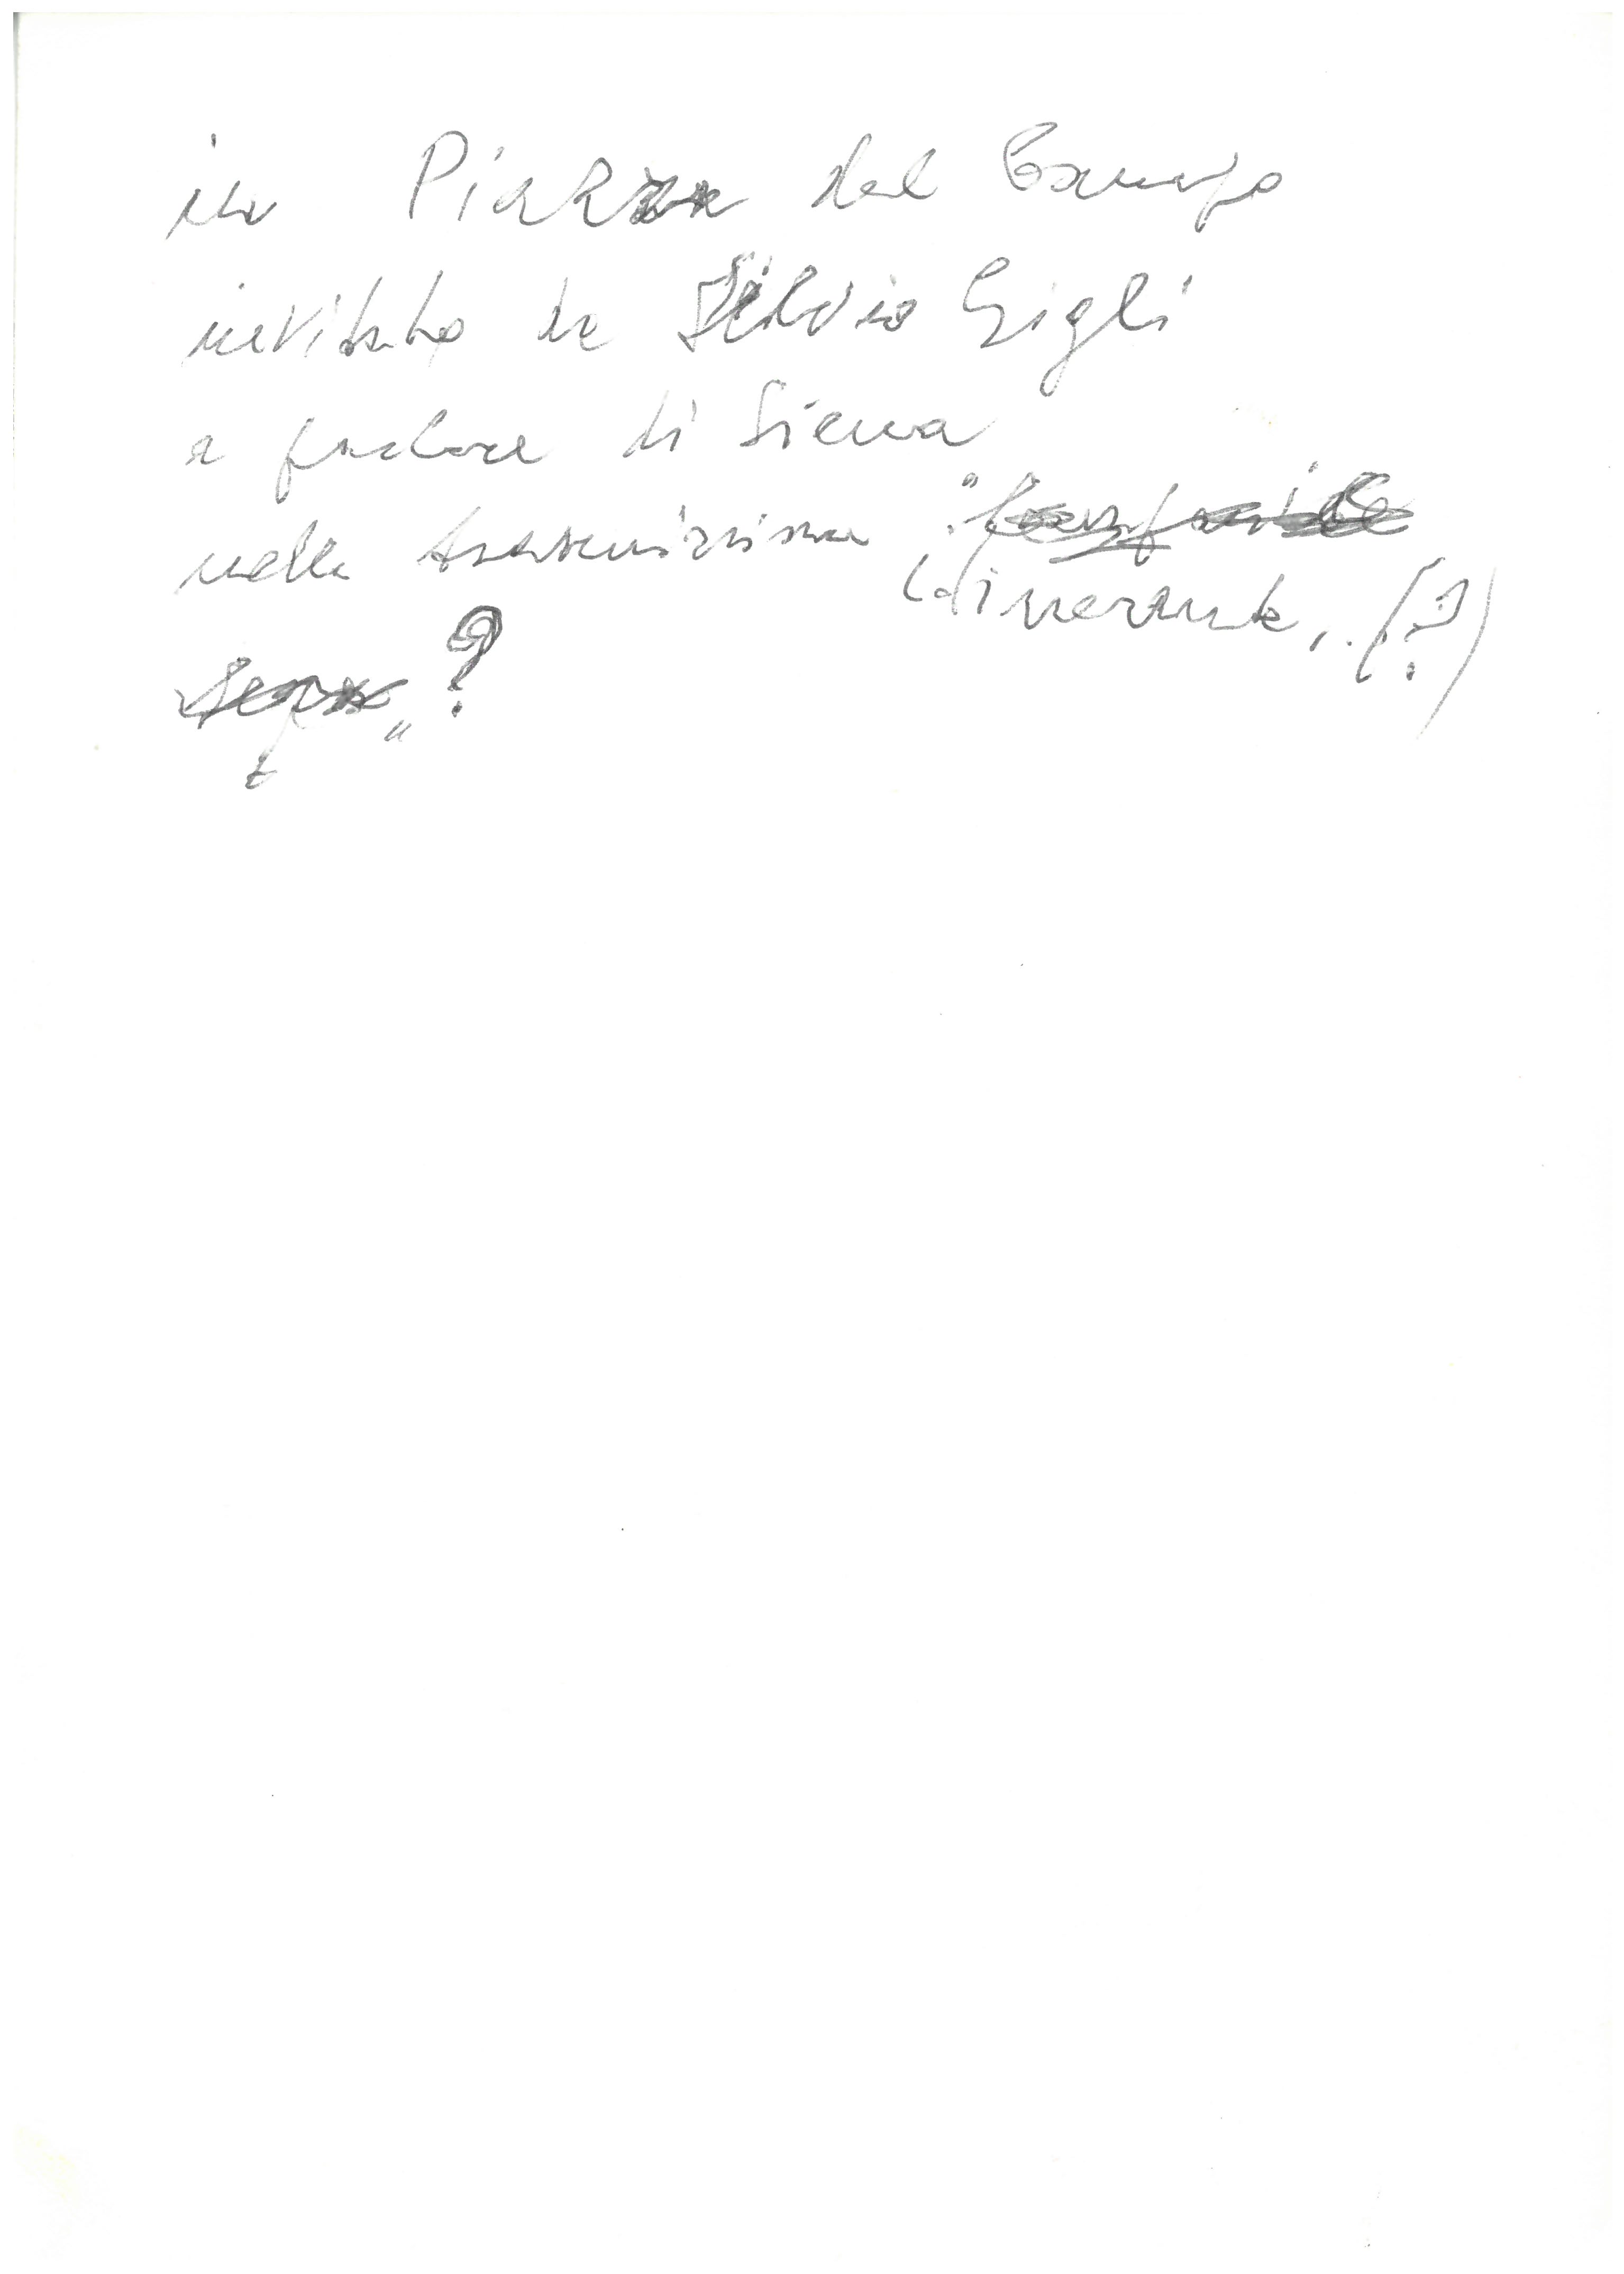 in Piazza del Campo
invitato da Silvio Gigli
a parlare di Siena
nella trasmissione "Campanile
itinerante, (?)
sera" ?